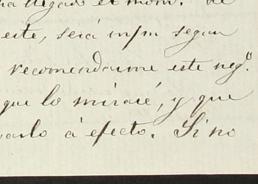 llegado el mom. de
este, será inf.m segun
recomendarme este neg.o
que lo miraré, y que
varlo á efecto. Si no